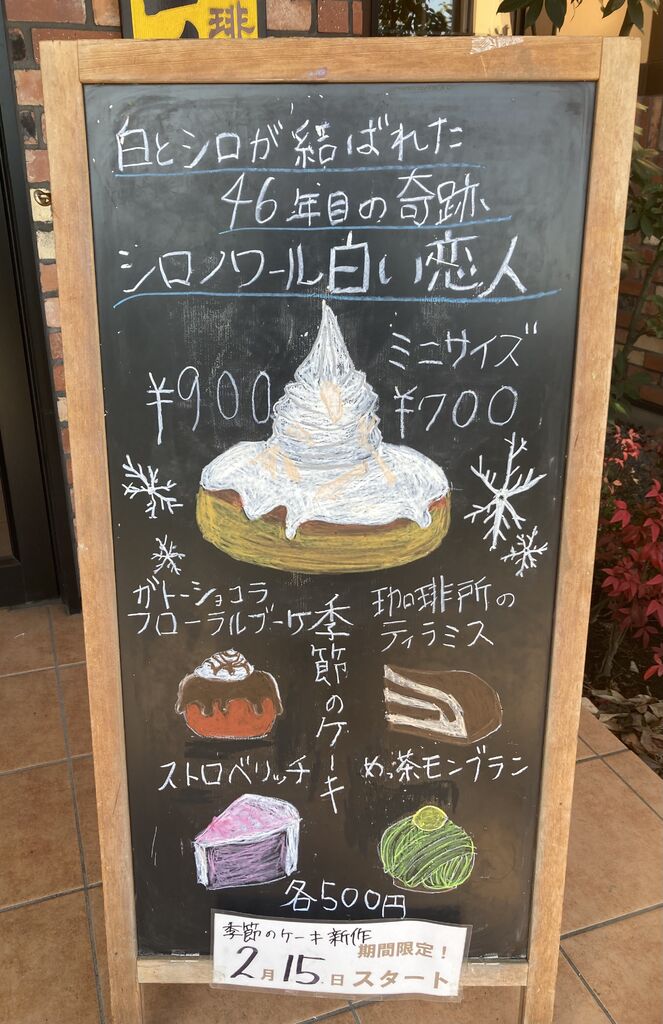 琲
白とシロが結ばれた
46年目の奇跡
シロノワール白い恋人
¥900
ミニサイズ
¥700
季節のケーキ
ガトーショコラ
フローラルブーケ
珈琲所の
ティラミス
ストロベリッチ
めっ茶モンブラン
各500円
季節のケーキ新作
期間限定!
2月15日スタート